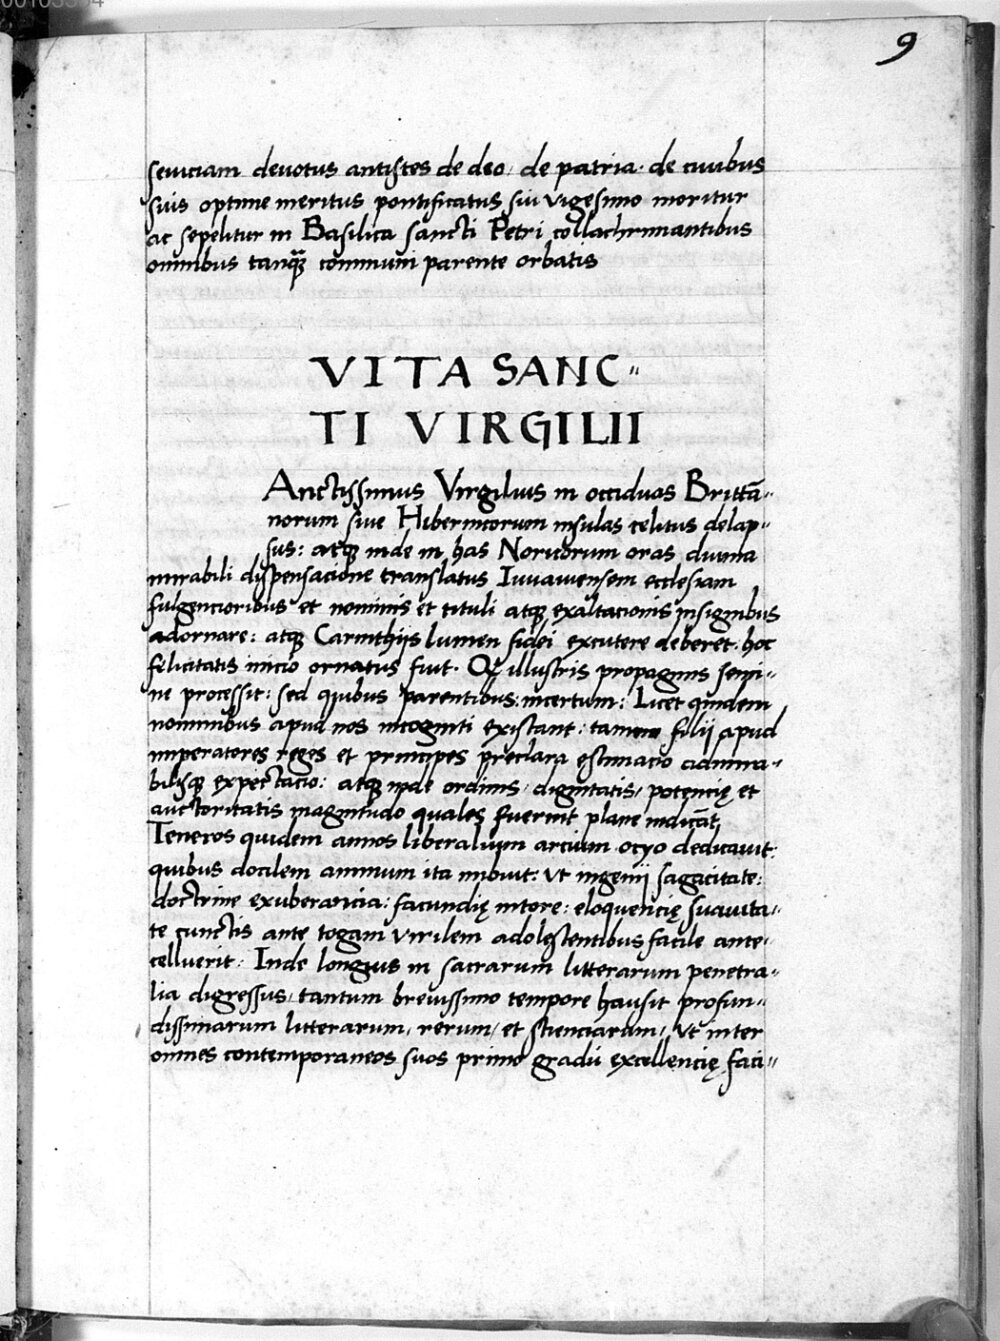 9
seuiciam deuotus antistes de deo, de patria. de ciuibus
suis optime meritus pontificatus sui vigesimo moritur
ac sepelitur in Basilica sancti Petri collachrimantibus
omnibus tanq̃ȝ communi parente orbatis
VITA SANC〃
TI VIRGILII
Anctissimus Virgilius in occiduas Brittã〃
norum siue Hibernicorum insulas celitus delap〃
sus: atqȝ inde in has Noricorum oras diuina
mirabili dispensacione translatus Iuuauiensem ecclesiam
fulgencioribus et nominis et tituli atqȝ exaltacionis insignibus
adornare: atqȝ Carinthijs lumen fidei excutere deberet. hoc
felicitatis inicio ornatus fuit. Qȝ illustris propaginis semi〃
ne processit: sed quibus parentibus: incertum: Licet quidem
nominibus apud nos incogniti existant: tamen filij apud
imperatores reges et principes preclara estimacio admira〃
bilisqȝ expectacio: atqȝ inde ordinis, dignitatis, potencię et
auctoritatis magnitudo quales fuerint plane indicãt
Teneros quidem annos liberalium arcium ocyo dedicauit:
quibus docilem animum ita imbuit: vt ingenij sagacitate:
doctrine exuberancia: facundię nitore: eloquencię suauita〃
te cunctis ante togam virilem adolescentibus facile ante〃
celluerit: Inde longius in sacrarum litterarum penetra〃
lia digressus, tantum breuissimo tempore hausit profun〃
dissimarum litterarum, rerum, et scienciarum, vt inter
omnes contemporaneos suos primo gradu excellencię faci〃